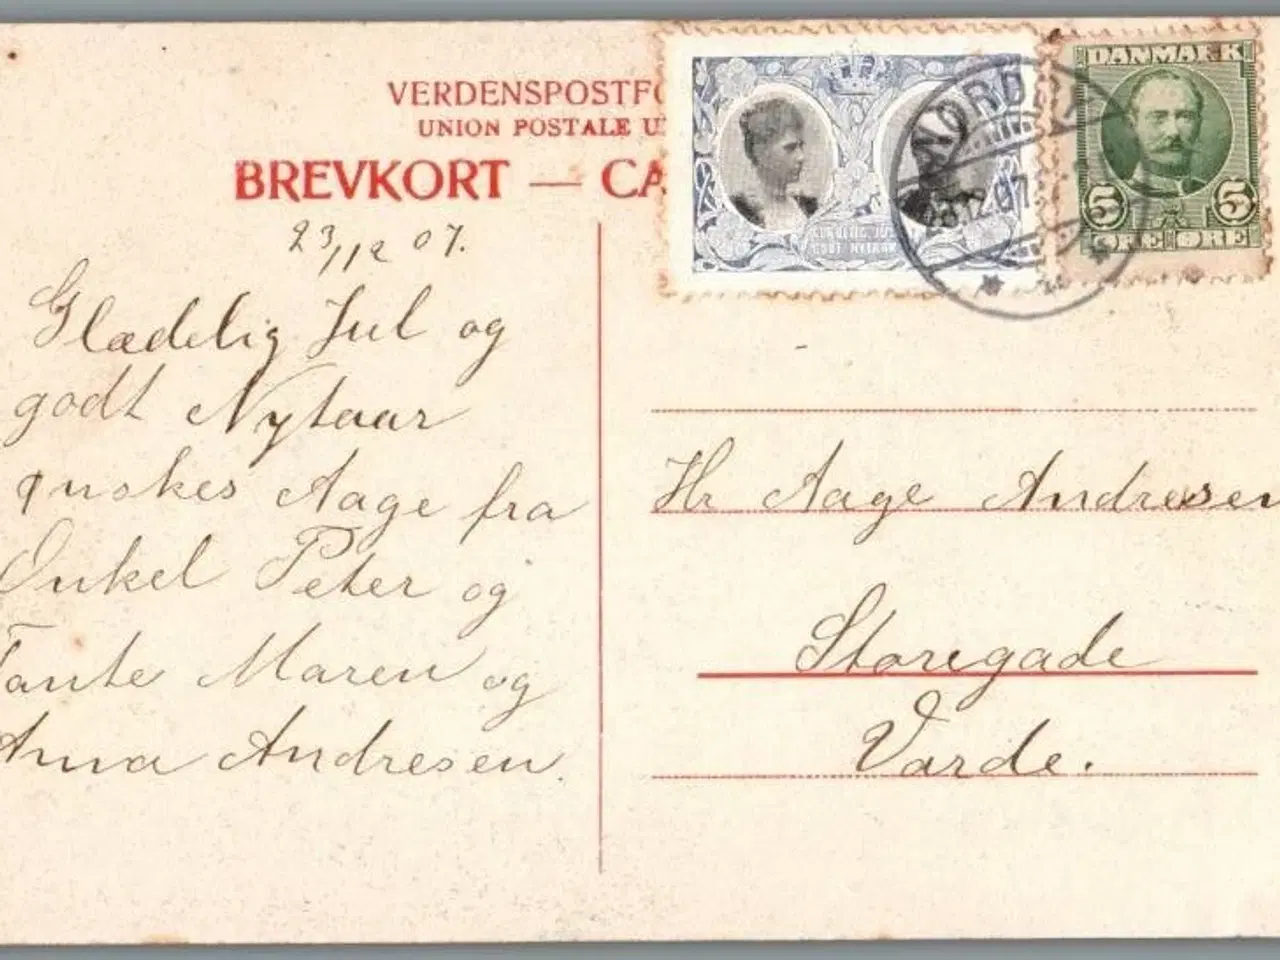 VERDENSPOSTFO
UNION POSTALE U
BREVKORT — CA
23/12 07.
Glædelig Jul og
godt Nytaar
ønskes Aage fra
Onkel Peter og
Tante Maren og
Anna Andresen.
GLÆDELIG JUL
GODT NYTAAR
NORDBY
23.12.07
DANMARK
5 5
ØRE ØRE
Hr Aage Andresen
Storegade
Varde.